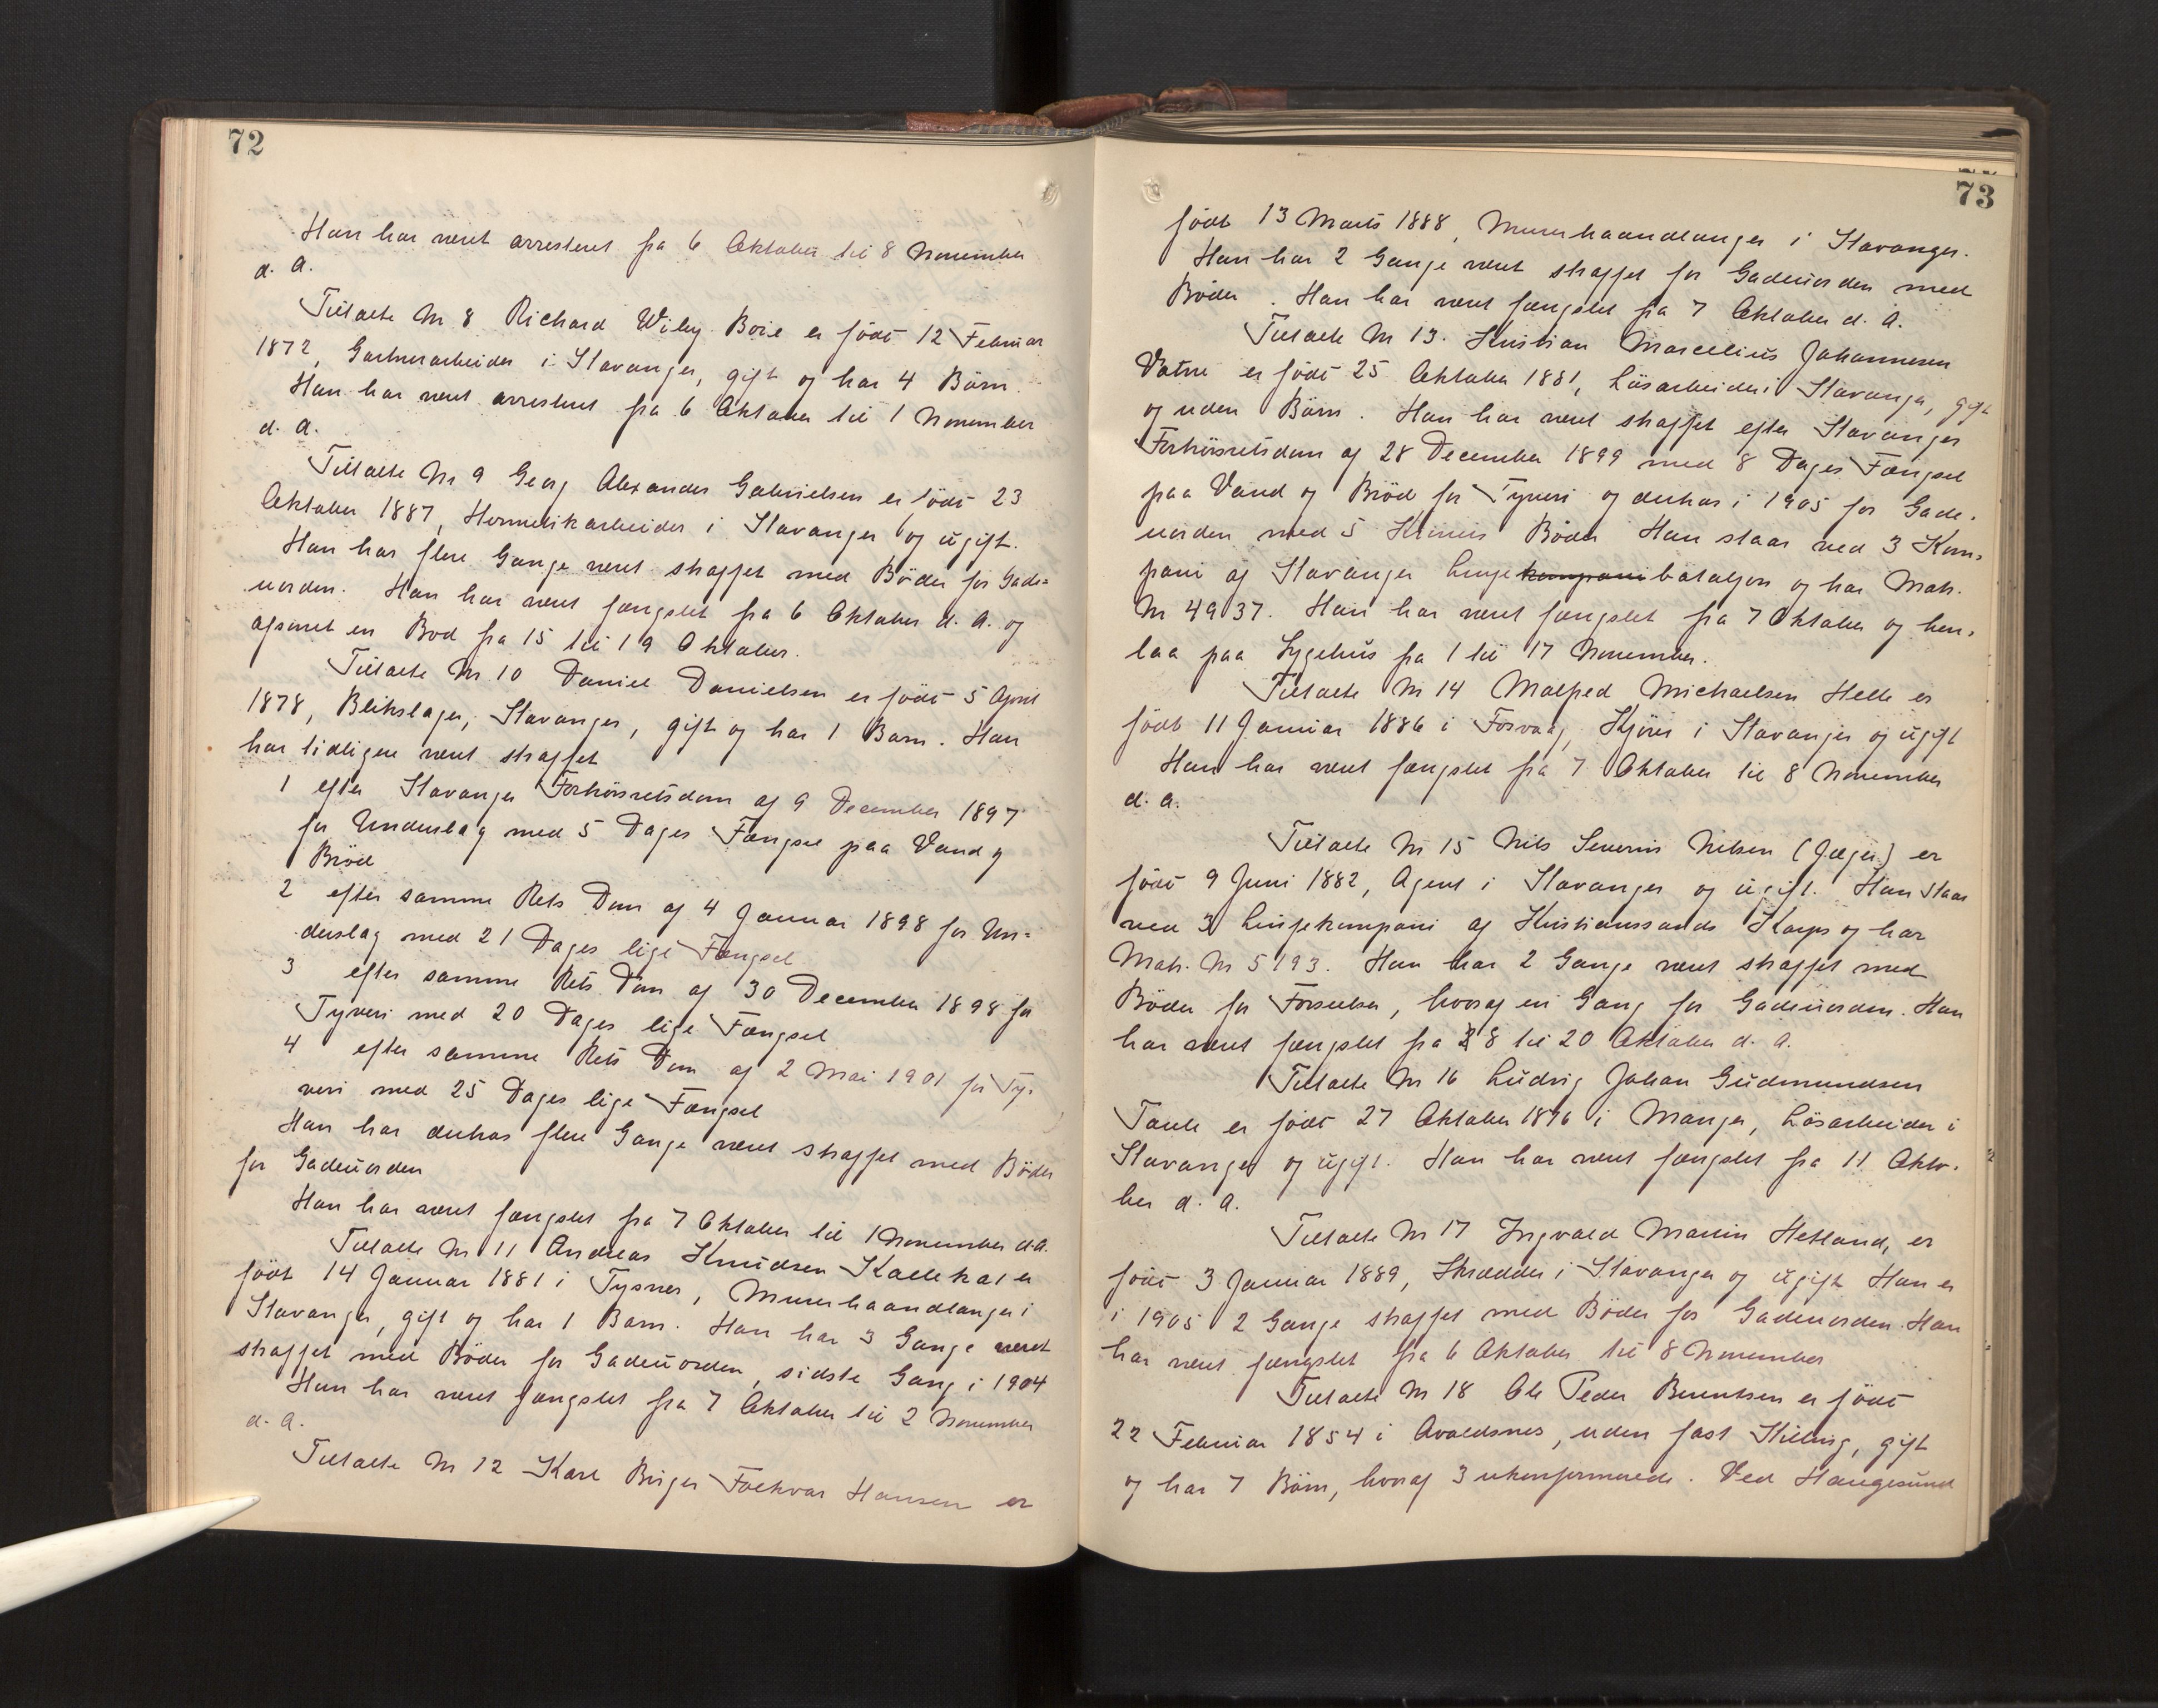 72
Han har været arresteret fra 6 Oktober til 8 November
d. A.
Tiltalte Nr 8 Richard Wiley Boie er födt 12 Februar
1872, Gartnerarbeider i Stavanger, gift og har 4 Börn.
Han har været arresteret fra 6 Oktober til 1 November
d. A.
Tiltalte Nr 9 Georg Alexander Gabrielsen er födt 23
Oktober 1887, Hermetikarbeider i Stavanger og ugift.
Han har flere Gange været straffet med Böder for Gade=
uorden. Han har været fængslet fra 6 Oktober d. A. og
afsonet en Bod fra 15 til 19 Oktober.
Tiltalte Nr 10 Daniel Danielsen er födt 5 April
1878, Blikslager, Stavanger, gift og har 1 Barn. Han
har tidligere været straffet
1 efter Stavanger Forhörsretsdom af 9 December 1897
for Underslag med 5 Dages Fængsel paa Vand og
Bröd
2 efter samme Rets Dom af 4 Januar 1898 for Un=
derslag med 21 Dages lige Fængsel
3 efter samme Rets Dom af 30 December 1898 for
Tyveri med 20 Dages lige Fængsel
4 efter samme Rets Dom af 2 Mai 1901 for Ty-
veri med 25 Dages lige Fængsel
Han har derhos flere Gange været straffet med Böder
for Gadeuorden
Han har været fængslet fra 7 Oktober til 1 November d.A.
Tiltalte Nr 11 Andreas Knudsen Kallekat er
födt 14 Januar 1881 i Tysnes, Murerhaandlanger i
Stavanger, gift og har 1 Barn. Han har 3 Gange været
straffet med Böder for Gadeuorden, sidste Gang i 1904
Han har været fængslet fra 7 Oktober til 2 November
d. A.
Tiltalte Nr 12 Karl Birger Folkvar Hansen er
73
födt 13 Marts 1888, Murerhaandlanger i Stavanger.
Han har 2 Gange været straffet for Gadeuorden med
Böder. Han har været fængslet fra 7 Oktober d. A.
Tiltalte Nr 13. Kristian Marcelius Johannesen
Vatne er födt 25 Oktober 1881, Lösarbeider i Stavanger, gift
og uden Börn. Han har været straffet efter Stavanger
Forhörsretsdom af 28 December 1899 med 8 Dages Fængsel
paa Vand og Bröd for Tyveri og derhos i 1905 for Gade-
uorden med 5 Kroners Böder Han staar ved 3 Kom-
pani af Stavanger Linjekompani bataljon og har Matr.
Nr 4937. Han har været fængslet fra 7 Oktober og hen-
laa paa Sygehus fra 1 til 17 November.
Tiltalte Nr 14 Malfred Michaelsen Helle er
födt 11 Januar 1886 i Fosvaag, Kjörer i Stavanger og ugift
Han har været fængslet fra 7 Oktober til 8 November
d. A.
Tiltalte Nr 15 Nils Severin Nilsen (Jæger) er
födt 9 Juni 1882, Agent i Stavanger og ugift. Han staar
ved 3 Linjekompani af Kristianssands Korps og har
Matr. Nr 5193. Han har 2 Gange været straffet med
Böder for Forseelser, hvoraf en Gang for Gadeuorden. Han
har været fængslet fra 8 til 20 Oktober d. A.
Tiltalte Nr 16 Ludvig Johan Gudmundsen
Taule er födt 27 Oktober 1876 i Manger, Lösarbeider i
Stavanger og ugift. Han har været fængslet fra 11 Okto-
ber d. A.
Tiltalte Nr 17 Ingvald Martin Hetland, er
födt 3 Januar 1889, Skrædder i Stavanger og ugift Han er
i 1905 2 Gange straffet med Böder for Gadeuorden. Han
har været fængslet fra 6 Oktober til 8 November
Tiltalte Nr 18 Ole Peder Berentsen er födt
22 Februar 1854 i Avaldsnes, uden fast Stilling, gift
og har 7 Börn, hvoraf 3 ukonfirmerede. Ved Haugesund